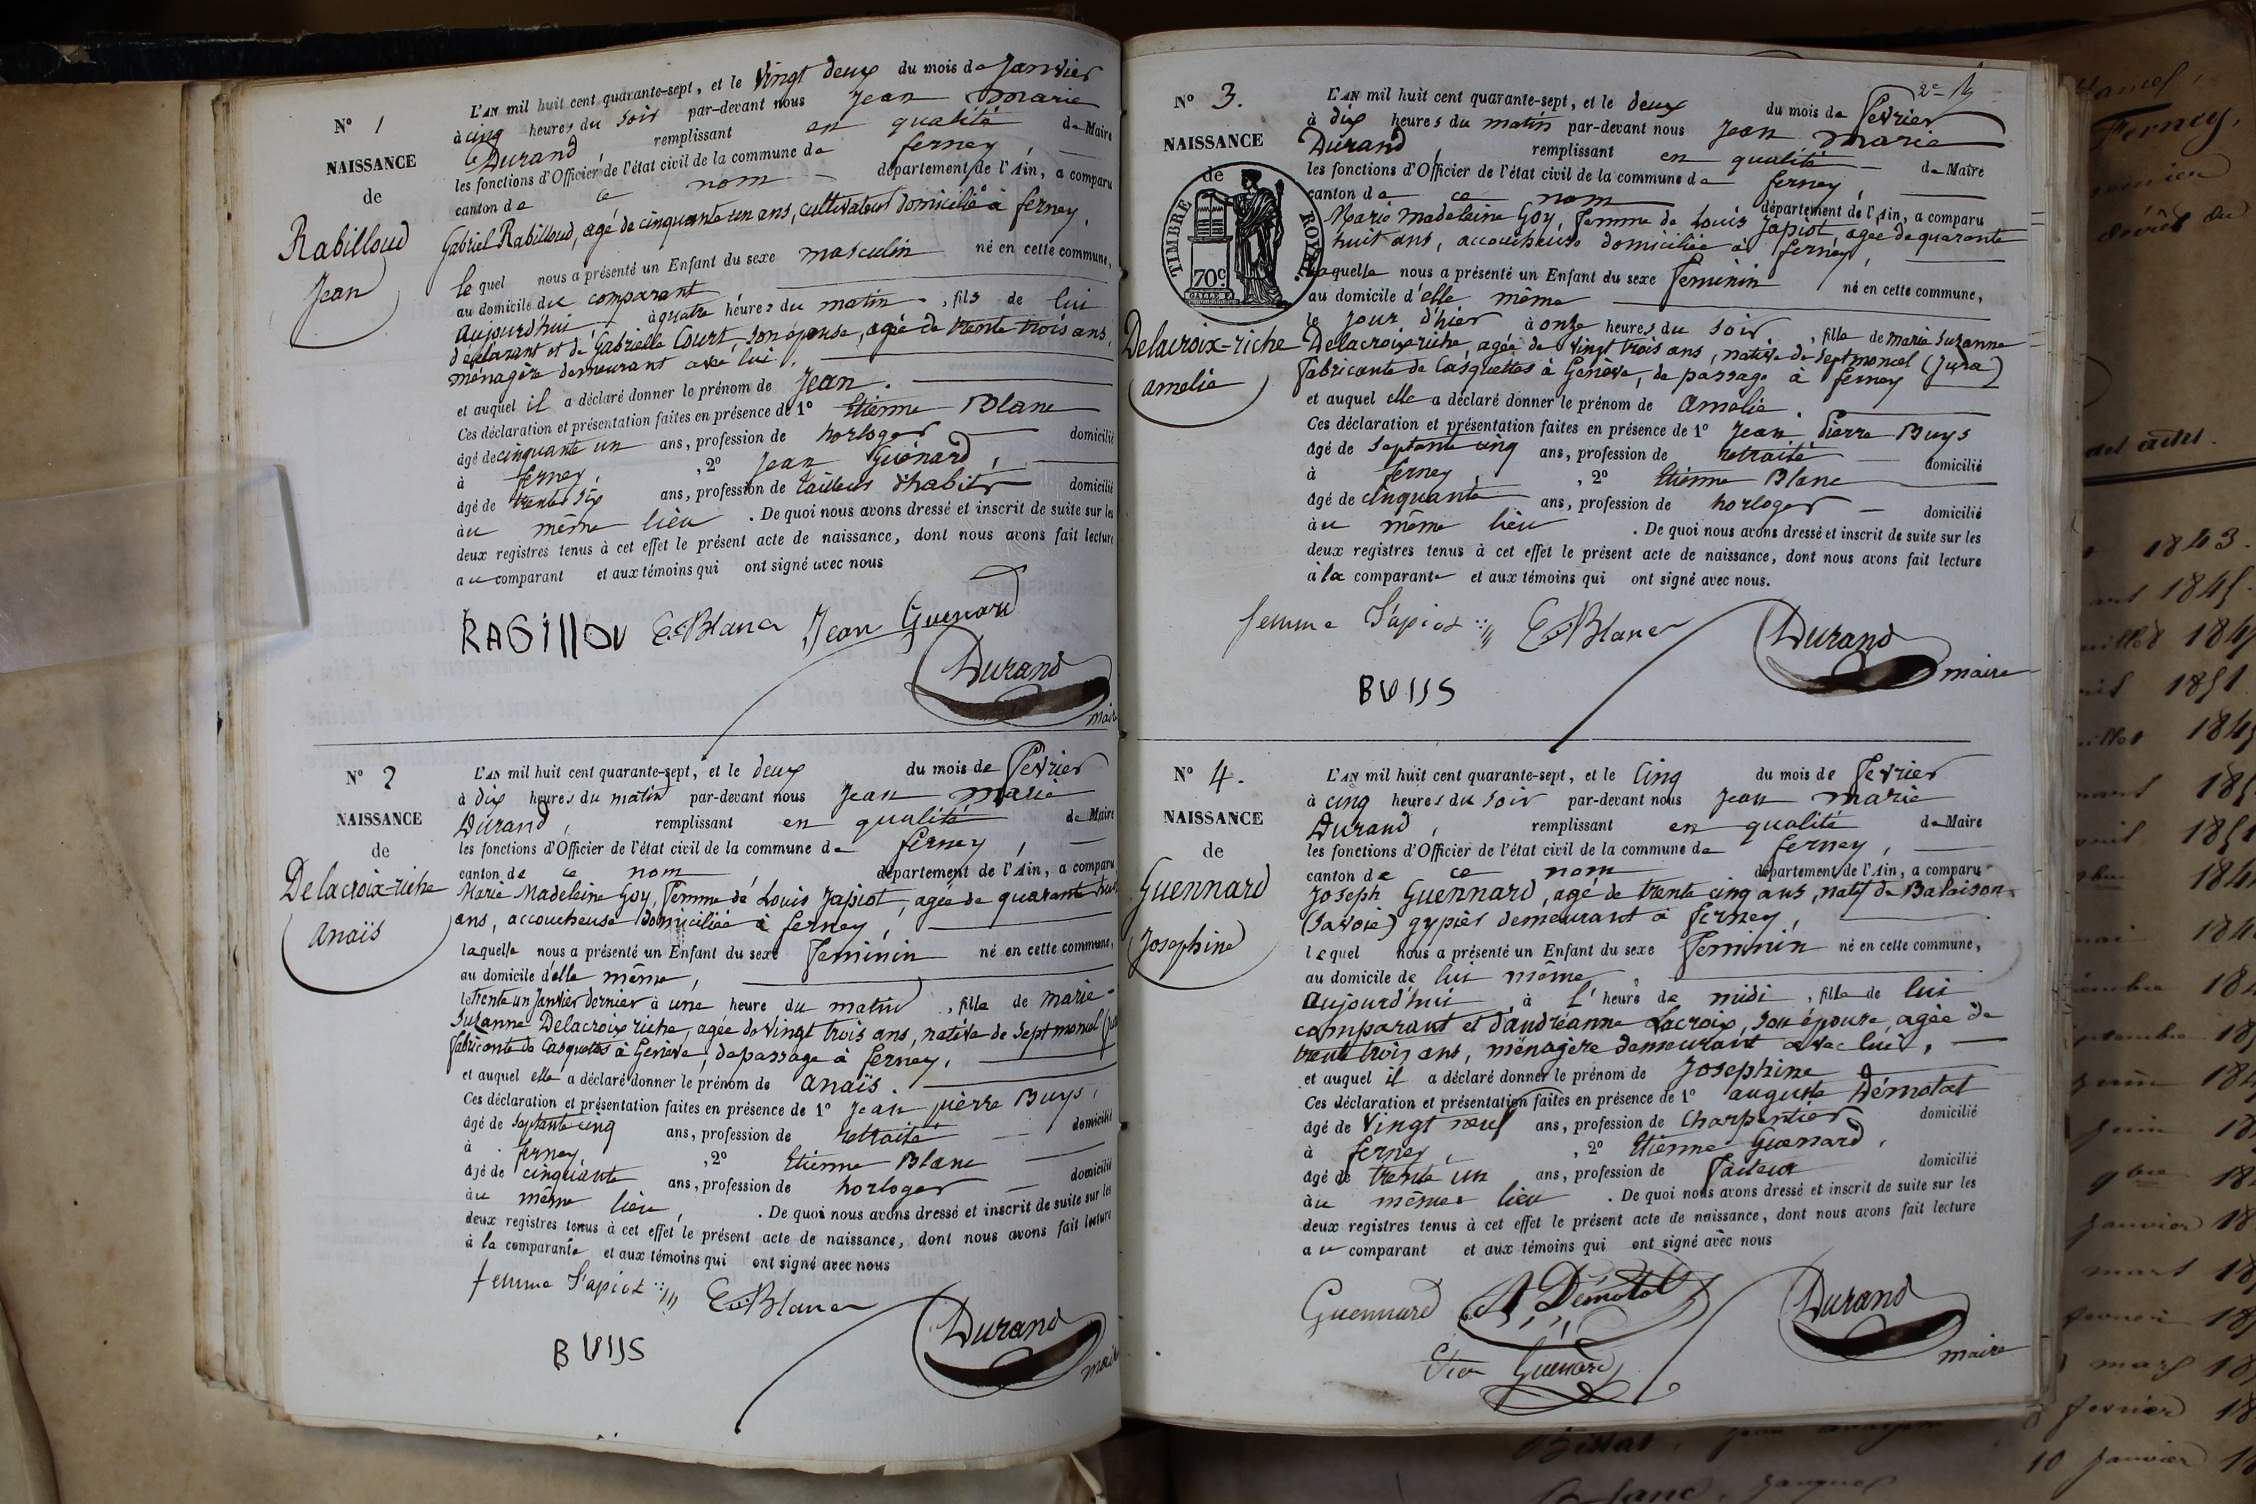 N° 1
NAISSANCE
de
Rabilloud
Jean
L'AN mil huit cent quarante-sept, et le vingt deux du mois de Janvier
à cinq heures du soir par-devant nous Jean Marie
Durand, remplissant en qualité de Maire
les fonctions d'Officier de l'état civil de la commune de ferney,
canton de ce nom département de l'Ain, a comparu
Gabriel Rabilloud, agé de cinquante un ans, cultivateur domicilié à ferney,
lequel nous a présenté un Enfant du sexe masculin né en cette commune,
au domicile du comparant
aujourd'hui à quatre heures du matin, fils de lui
déclarant et de Gabrielle Court son épouse, agée de trente trois ans,
ménagère demeurant avec lui.
et auquel il a déclaré donner le prénom de Jean.
Ces déclaration et présentation faites en présence de 1° Etienne Blanc
âgé de cinquante un ans, profession de horloger domicilié
à ferney, , 2° Jean Guénard,
âgé de trente six ans, profession de tailleur d'habits domicilié
au même lieu . De quoi nous avons dressé et inscrit de suite sur les
deux registres tenus à cet effet le présent acte de naissance, dont nous avons fait lecture
au comparant et aux témoins qui ont signé avec nous
RABIllOU E. Blanc Jean Guenard
Durand
maire
N° 2
NAISSANCE
de
Delacroix-riche
anaïs
L'AN mil huit cent quarante-sept, et le deux du mois de Février
à dix heures du matin par-devant nous Jean Marie
Durand, remplissant en qualité de Maire
les fonctions d'Officier de l'état civil de la commune de ferney,
canton de ce nom département de l'Ain, a comparu
Marie Madeleine Goy, femme de Louis Japiot, agée de quarante huit
ans, accoucheuse domiciliée à ferney,
laquelle nous a présenté un Enfant du sexe feminin né en cette commune,
au domicile d'elle même,
le trente un Janvier dernier à une heure du matin, fille de marie-
Suzanne Delacroix riche, agée de vingt trois ans, native de Septmoncel (Jura)
fabricante de Casquettes à Genève, de passage à ferney,
et auquel elle a déclaré donner le prénom de anaïs.
Ces déclaration et présentation faites en présence de 1° Jean pierre Buys,
âgé de septante cinq ans, profession de retraité domicilié
à ferney , 2° Etienne Blanc
âgé de cinquante ans, profession de horloger domicilié
au même lieu, . De quoi nous avons dressé et inscrit de suite sur les
deux registres tenus à cet effet le présent acte de naissance, dont nous avons fait lecture
à la comparante et aux témoins qui ont signé avec nous
femme Japiot E. Blanc
Durand
BUIJS
maire
N° 3.
NAISSANCE
de
TIMBRE ROYAL
70c
Delacroix-riche
amelie
L'AN mil huit cent quarante-sept, et le deux du mois de Février
à dix heures du matin par-devant nous Jean Marie
Durand, remplissant en qualité de Maire
les fonctions d'Officier de l'état civil de la commune de ferney,
canton de ce nom département de l'Ain, a comparu
Marie Madeleine Goy, femme de Louis Japiot agée de quarante
huit ans, accoucheuse domiciliée à ferney,
laquelle nous a présenté un Enfant du sexe feminin né en cette commune,
au domicile d'elle même
le jour d'hier à onze heures du soir, fille de marie Suzanne
Delacroix riche, agée de vingt trois ans, native de Septmoncel (Jura)
fabricante de Casquettes à Genève, de passage à ferney
et auquel elle a déclaré donner le prénom de amelie.
Ces déclaration et présentation faites en présence de 1° Jean Pierre Buys
âgé de septante cinq ans, profession de retraité domicilié
à ferney , 2° Etienne Blanc
âgé de cinquante ans, profession de horloger domicilié
au même lieu . De quoi nous avons dressé et inscrit de suite sur les
deux registres tenus à cet effet le présent acte de naissance, dont nous avons fait lecture
à la comparante et aux témoins qui ont signé avec nous.
femme Japiot E. Blanc Durand
maire
BUIJS
N° 4.
NAISSANCE
de
Guennard
Josephine
L'AN mil huit cent quarante-sept, et le cinq du mois de Fevrier
à cinq heures du soir par-devant nous Jean Marie
Durand, remplissant en qualité de Maire
les fonctions d'Officier de l'état civil de la commune de ferney,
canton de ce nom département de l'Ain, a comparu
Joseph Guennard, agé de trente cinq ans, natif de Balaison
(Savoie) gypier demeurant à ferney,
lequel nous a présenté un Enfant du sexe feminin né en cette commune,
au domicile de lui même
aujourd'hui, à l'heure de midi, fille de lui
comparant et d'andréanne Lacroix, son épouse, agée de
trente trois ans, ménagère demeurant avec lui,
et auquel il a déclaré donner le prénom de Josephine
Ces déclaration et présentation faites en présence de 1° auguste Démotat
âgé de vingt neuf ans, profession de Charpentier domicilié
à ferney, , 2° Etienne Guenard,
âgé de trente un ans, profession de facteur domicilié
au même lieu . De quoi nous avons dressé et inscrit de suite sur les
deux registres tenus à cet effet le présent acte de naissance, dont nous avons fait lecture
au comparant et aux témoins qui ont signé avec nous
Guennard A. Démotat Durand
maire
Etne Guenard
Ferney,
1843.
1845.
1851
10 Janvier